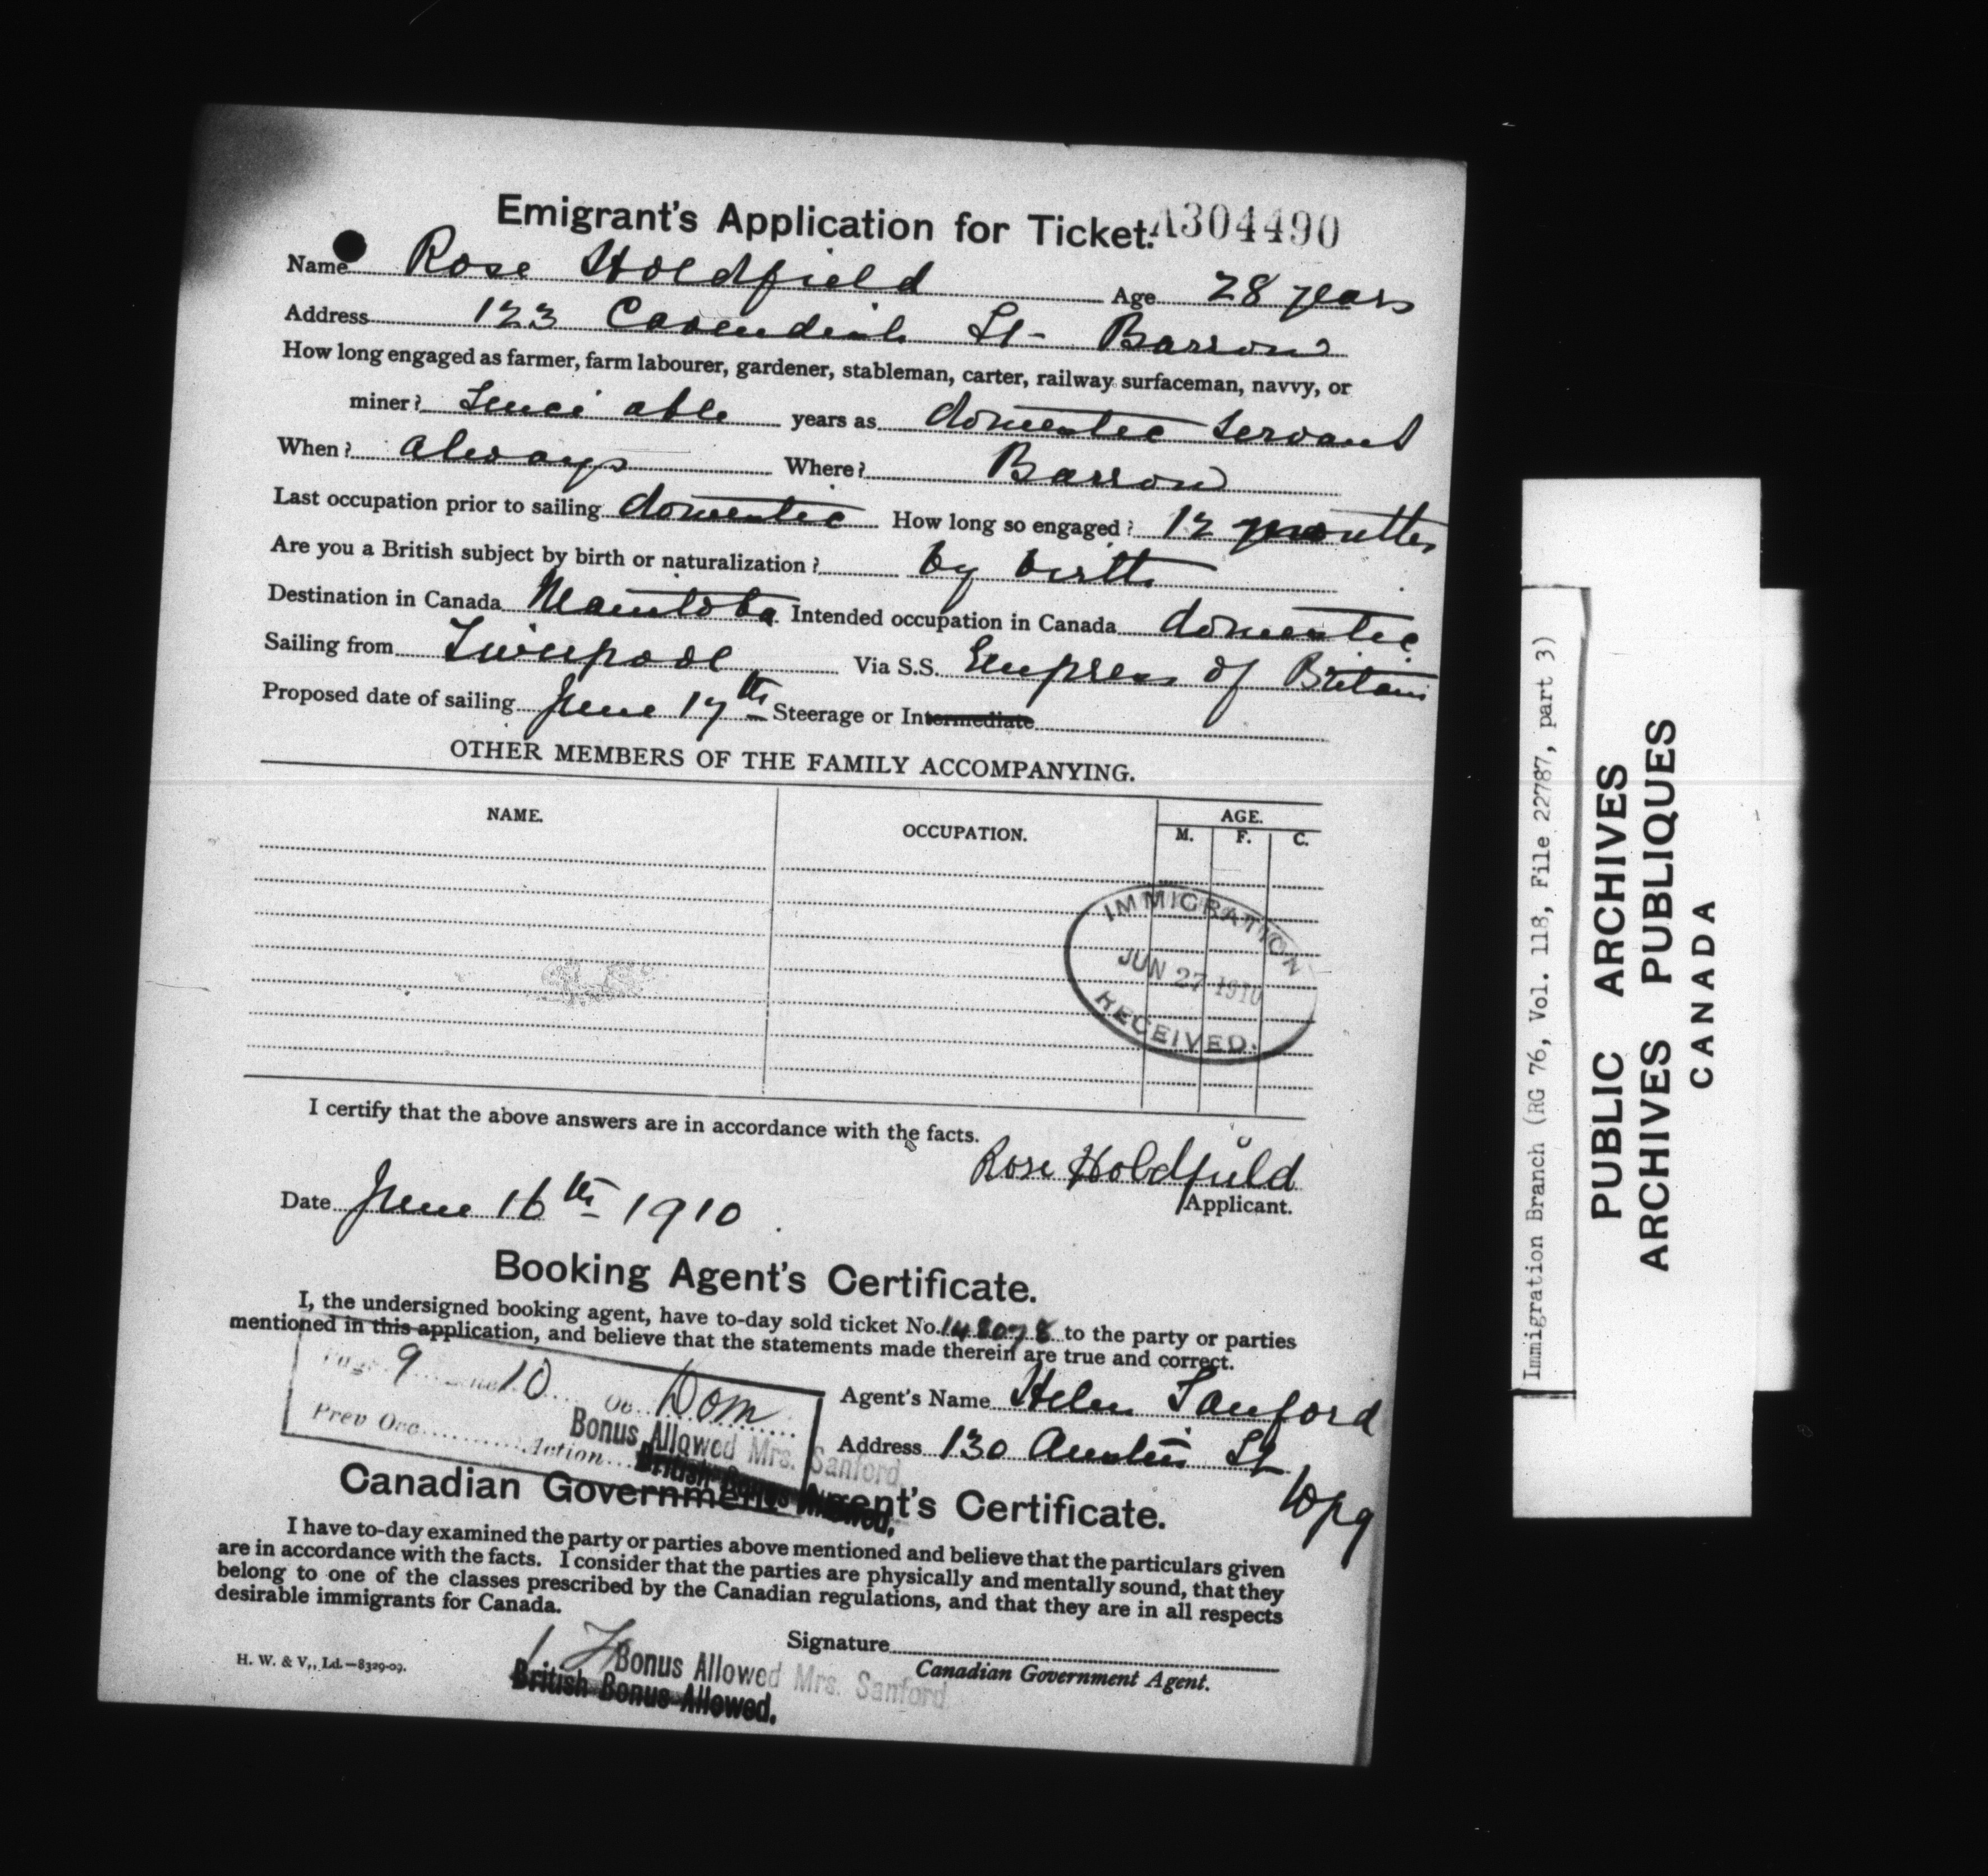 Emigrant's Application for Ticket. A304490
Name Rose Holdfield Age 28 years
Address 123 Cavendish St - Barrow
How long engaged as farmer, farm labourer, gardener, stableman, carter, railway surfaceman, navvy, or
miner? Since able years as domestic servant
When? always Where? Barrow
Last occupation prior to sailing domestic How long so engaged? 12 months
Are you a British subject by birth or naturalization? by birth
Destination in Canada Manitoba Intended occupation in Canada domestic
Sailing from Liverpool Via S.S. Empress of Britain
Proposed date of sailing June 17th Steerage or Intermediate
OTHER MEMBERS OF THE FAMILY ACCOMPANYING.
NAME. OCCUPATION. AGE.
M. F. C.
IMMIGRATION
JUN 27 1910
RECEIVED.
I certify that the above answers are in accordance with the facts.
Rose Holdfield
Applicant.
Date June 16th 1910
Booking Agent's Certificate.
I, the undersigned booking agent, have to-day sold ticket No. 148078 to the party or parties
mentioned in this application, and believe that the statements made therein are true and correct.
Page 9 Line 10 Oc Dom
Prev Occ Action
Bonus Allowed Mrs. Sanford
British Bonus Allowed,
Agent's Name Helen Sanford
Address 130 Austin St
Wpg
Canadian Government Agent's Certificate.
I have to-day examined the party or parties above mentioned and believe that the particulars given
are in accordance with the facts. I consider that the parties are physically and mentally sound, that they
belong to one of the classes prescribed by the Canadian regulations, and that they are in all respects
desirable immigrants for Canada.
Signature
Canadian Government Agent.
H. W. & V., Ld.—8329-09.
Bonus Allowed Mrs. Sanford
British Bonus Allowed.
Immigration Branch (RG 76, Vol. 118, File 22787, part 3)
PUBLIC ARCHIVES
ARCHIVES PUBLIQUES
CANADA